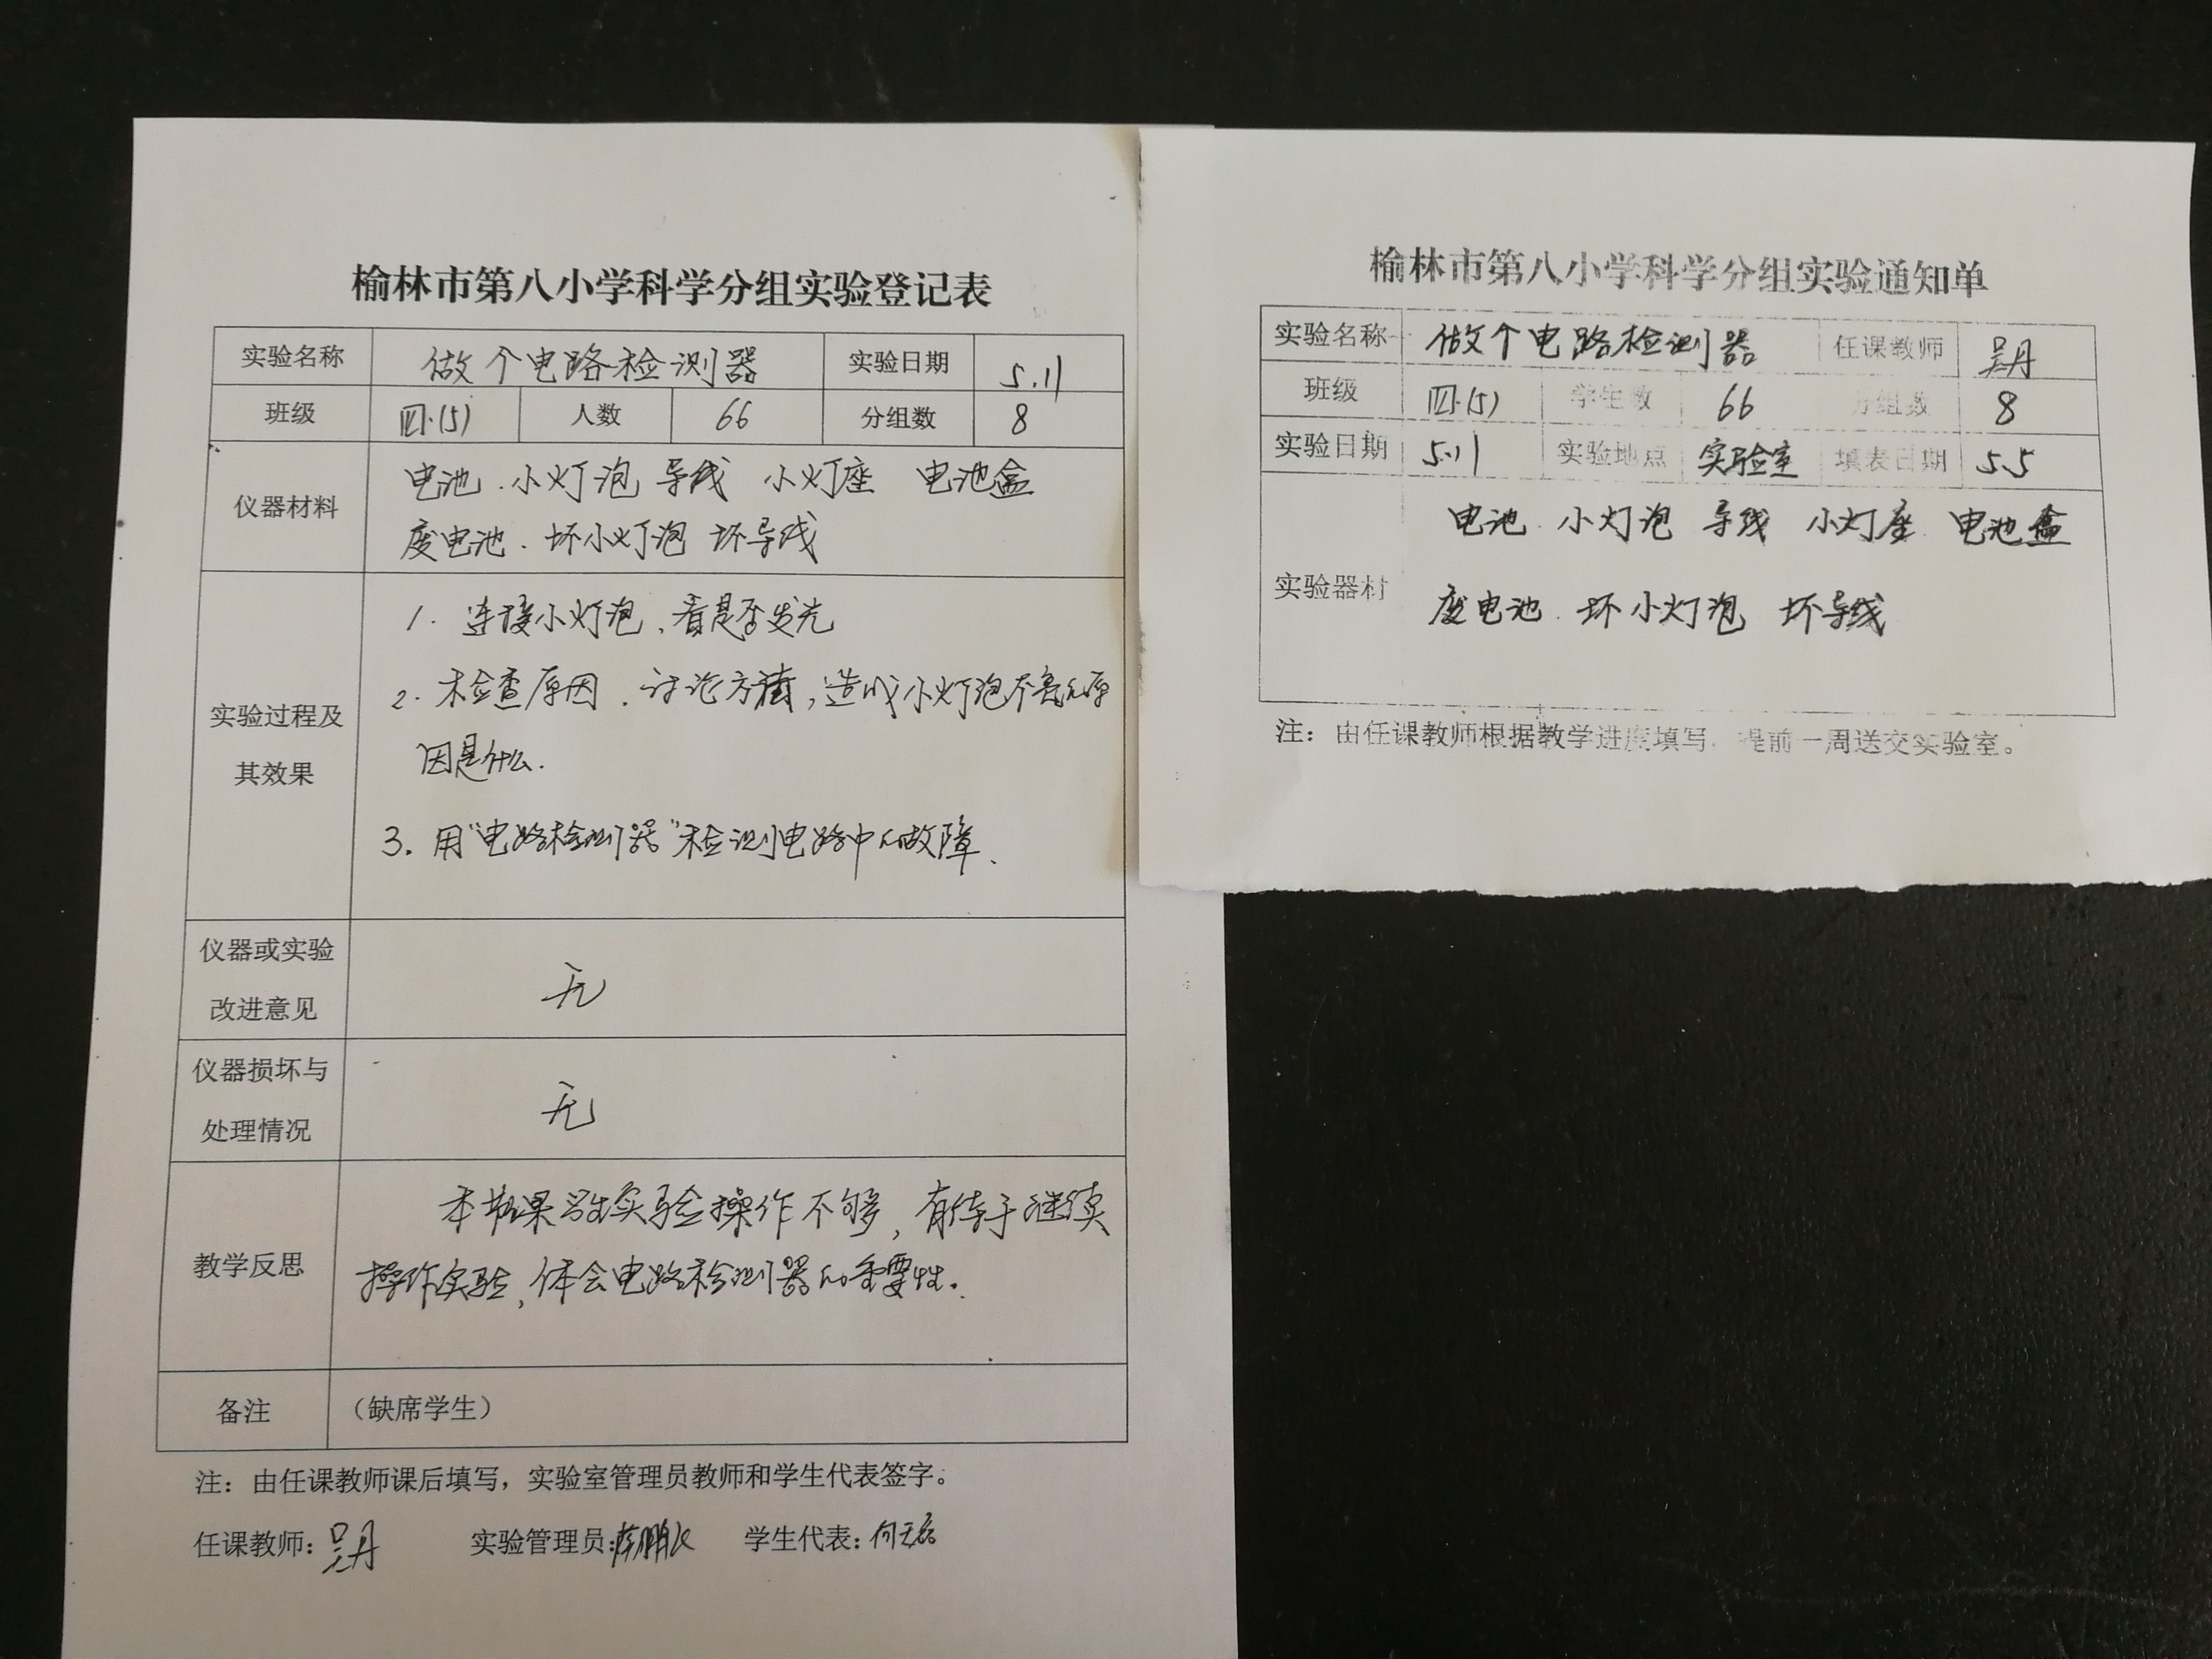 榆林市第八小学科学分组实验登记表
实验名称 做个电路检测器 实验日期 5.11
班级 四.(5) 人数 66 分组数 8
仪器材料
电池.小灯泡 导线 小灯座 电池盒
废电池.坏小灯泡 坏导线
实验过程及
其效果
1. 连接小灯泡,看是否发光
2. 检查原因.讨论方法,造成小灯泡不亮的原
因是什么.
3. 用"电路检测器"检测电路中的故障.
仪器或实验
改进意见
无
仪器损坏与
处理情况
无
教学反思
本节课学生实验操作不够,有待于继续
操作实验,体会电路检测器的重要性.
备注 (缺席学生)
注:由任课教师课后填写,实验室管理员教师和学生代表签字。
任课教师:吴丹 实验管理员: 学生代表:
榆林市第八小学科学分组实验通知单
实验名称 做个电路检测器 任课教师 吴丹
班级 四.(5) 学生数 66 分组数 8
实验日期 5.11 实验地点 实验室 填表日期 5.5
实验器材
电池.小灯泡 导线 小灯座 电池盒
废电池.坏小灯泡 坏导线
注:由任课教师根据教学进度填写,提前一周送交实验室。